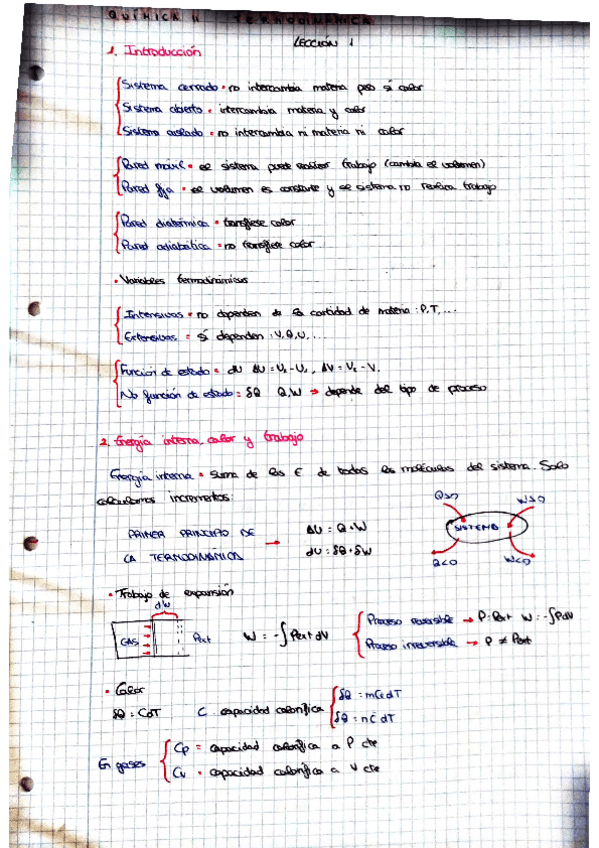 QUÍMICA II TERMODINÁMICA
LECCIÓN 1
1. Introducción
Sistema cerrado = no intercambia materia pero sí calor
Sistema abierto = intercambia materia y calor
Sistema aislado = no intercambia ni materia ni calor
Pared móvil = el sistema puede realizar trabajo (cambia el volumen)
Pared fija = el volumen es constante y el sistema no realiza trabajo
Pared diatérmica = transfiere calor
Pared adiabática = no transfiere calor
• Variables termodinámicas
Intensivas = no dependen de la cantidad de materia : P, T, ...
Extensivas = sí dependen : V, Q, U, ...
Función de estado = dU ΔU = U₂ - U₁ , ΔV = V₂ - V₁
No función de estado = δQ Q, W → depende del tipo de proceso
2. Energía interna, calor y trabajo
Energía interna = Suma de las E de todas las moléculas del sistema. Solo
calculamos incrementos:
PRIMER PRINCIPIO DE
LA TERMODINÁMICA
→
ΔU = Q + W
dU = δQ + δW
Q>0
W>0
SISTEMA
Q<0
W<0
• Trabajo de expansión
GAS
Pext
W = -∫Pext dV
Proceso reversible → P = Pext W = -∫PdV
Proceso irreversible → P ≠ Pext
• Calor
δQ = CdT
C = capacidad calorífica
δQ = mCedT
δQ = nC̄dT
En gases
Cp = capacidad calorífica a P cte
Cv = capacidad calorífica a V cte